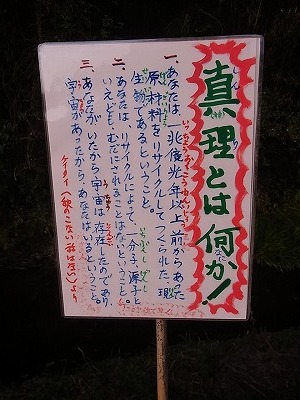 真理とは何か!
しんり
なに
一、あなたは、一兆億光年以上前からあった
いっちょうおくこうねんいじょう
原材料をリサイクルしてつくられた現
生物であるということ。
せいぶつ
二、あなたは、リサイクルによって、一分子、一原子と
いえども、むだにされることはないということ。
三、あなたがいたから宇宙は存在したのであり、
宇宙があったから、あなたはいるということ。